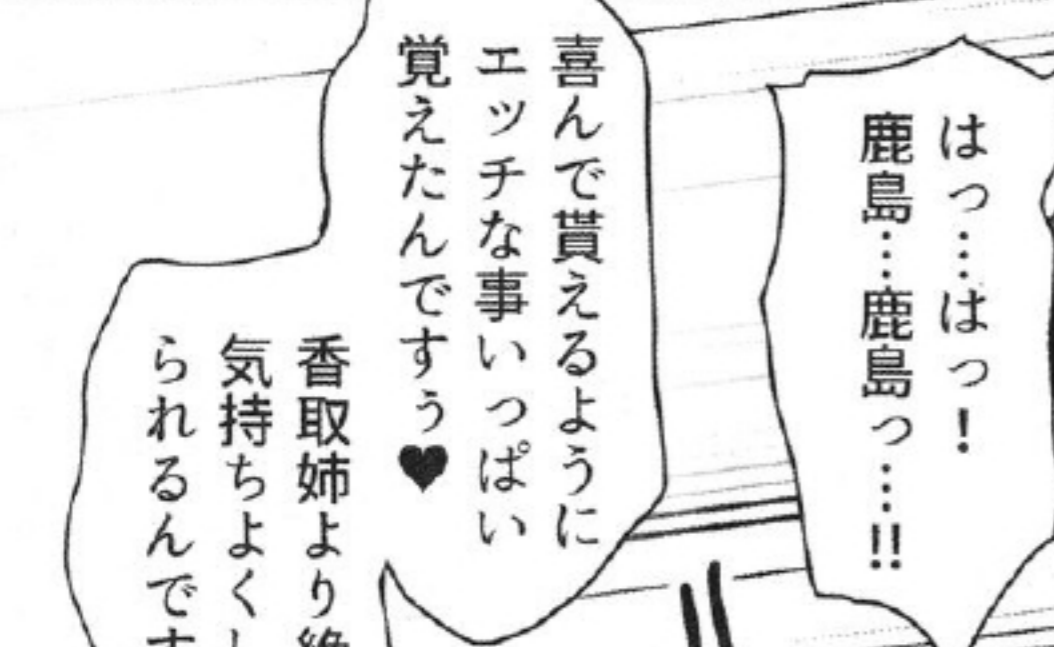 はっ…はっ！
鹿島…鹿島っ…!!
喜んで貰えるように
エッチな事いっぱい
覚えたんですぅ♥
香取姉より絶
気持ちよくし
られるんです